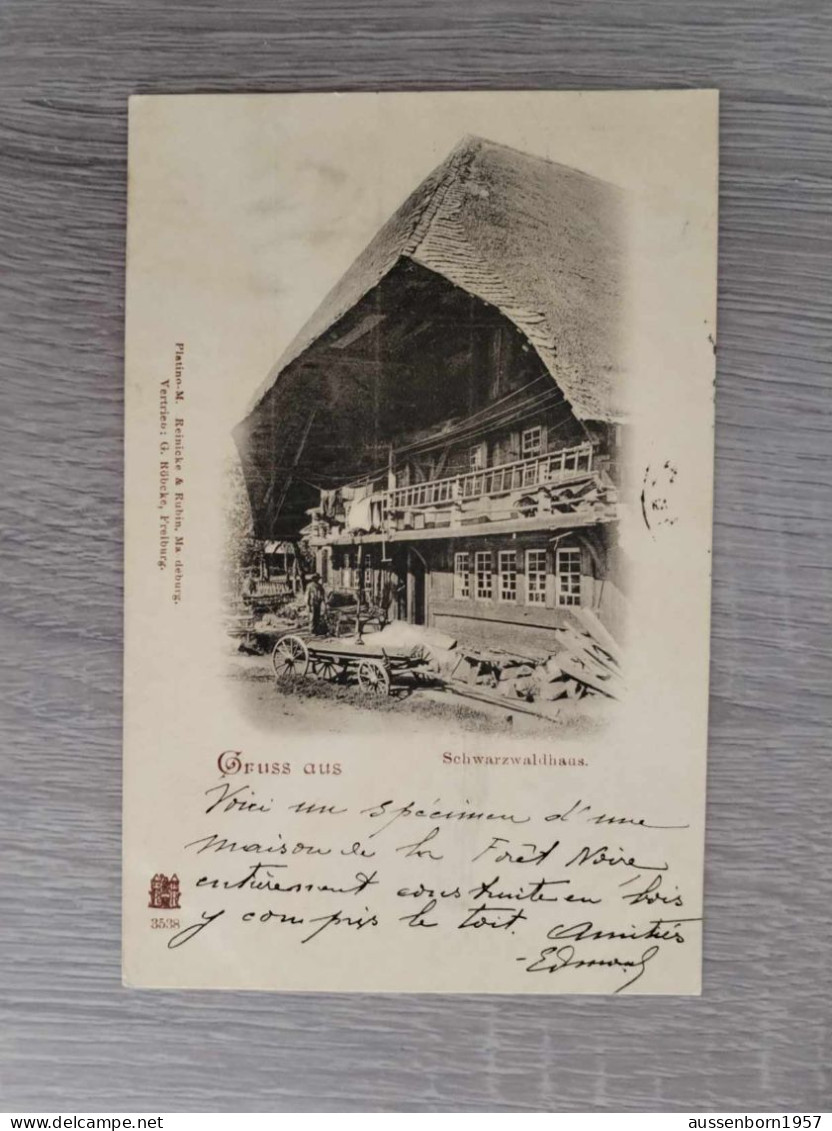 Platino-M. Reinicke & Rubin, Ma deburg.
Vertrieb: G. Röbcke, Freiburg.
Gruss aus
Schwarzwaldhaus.
Voici un spécimen d'une
maison de la Forêt Noire
entièrement construite en bois
y compris le toit. Amitiés
Edmond
3538
aussenborn1957